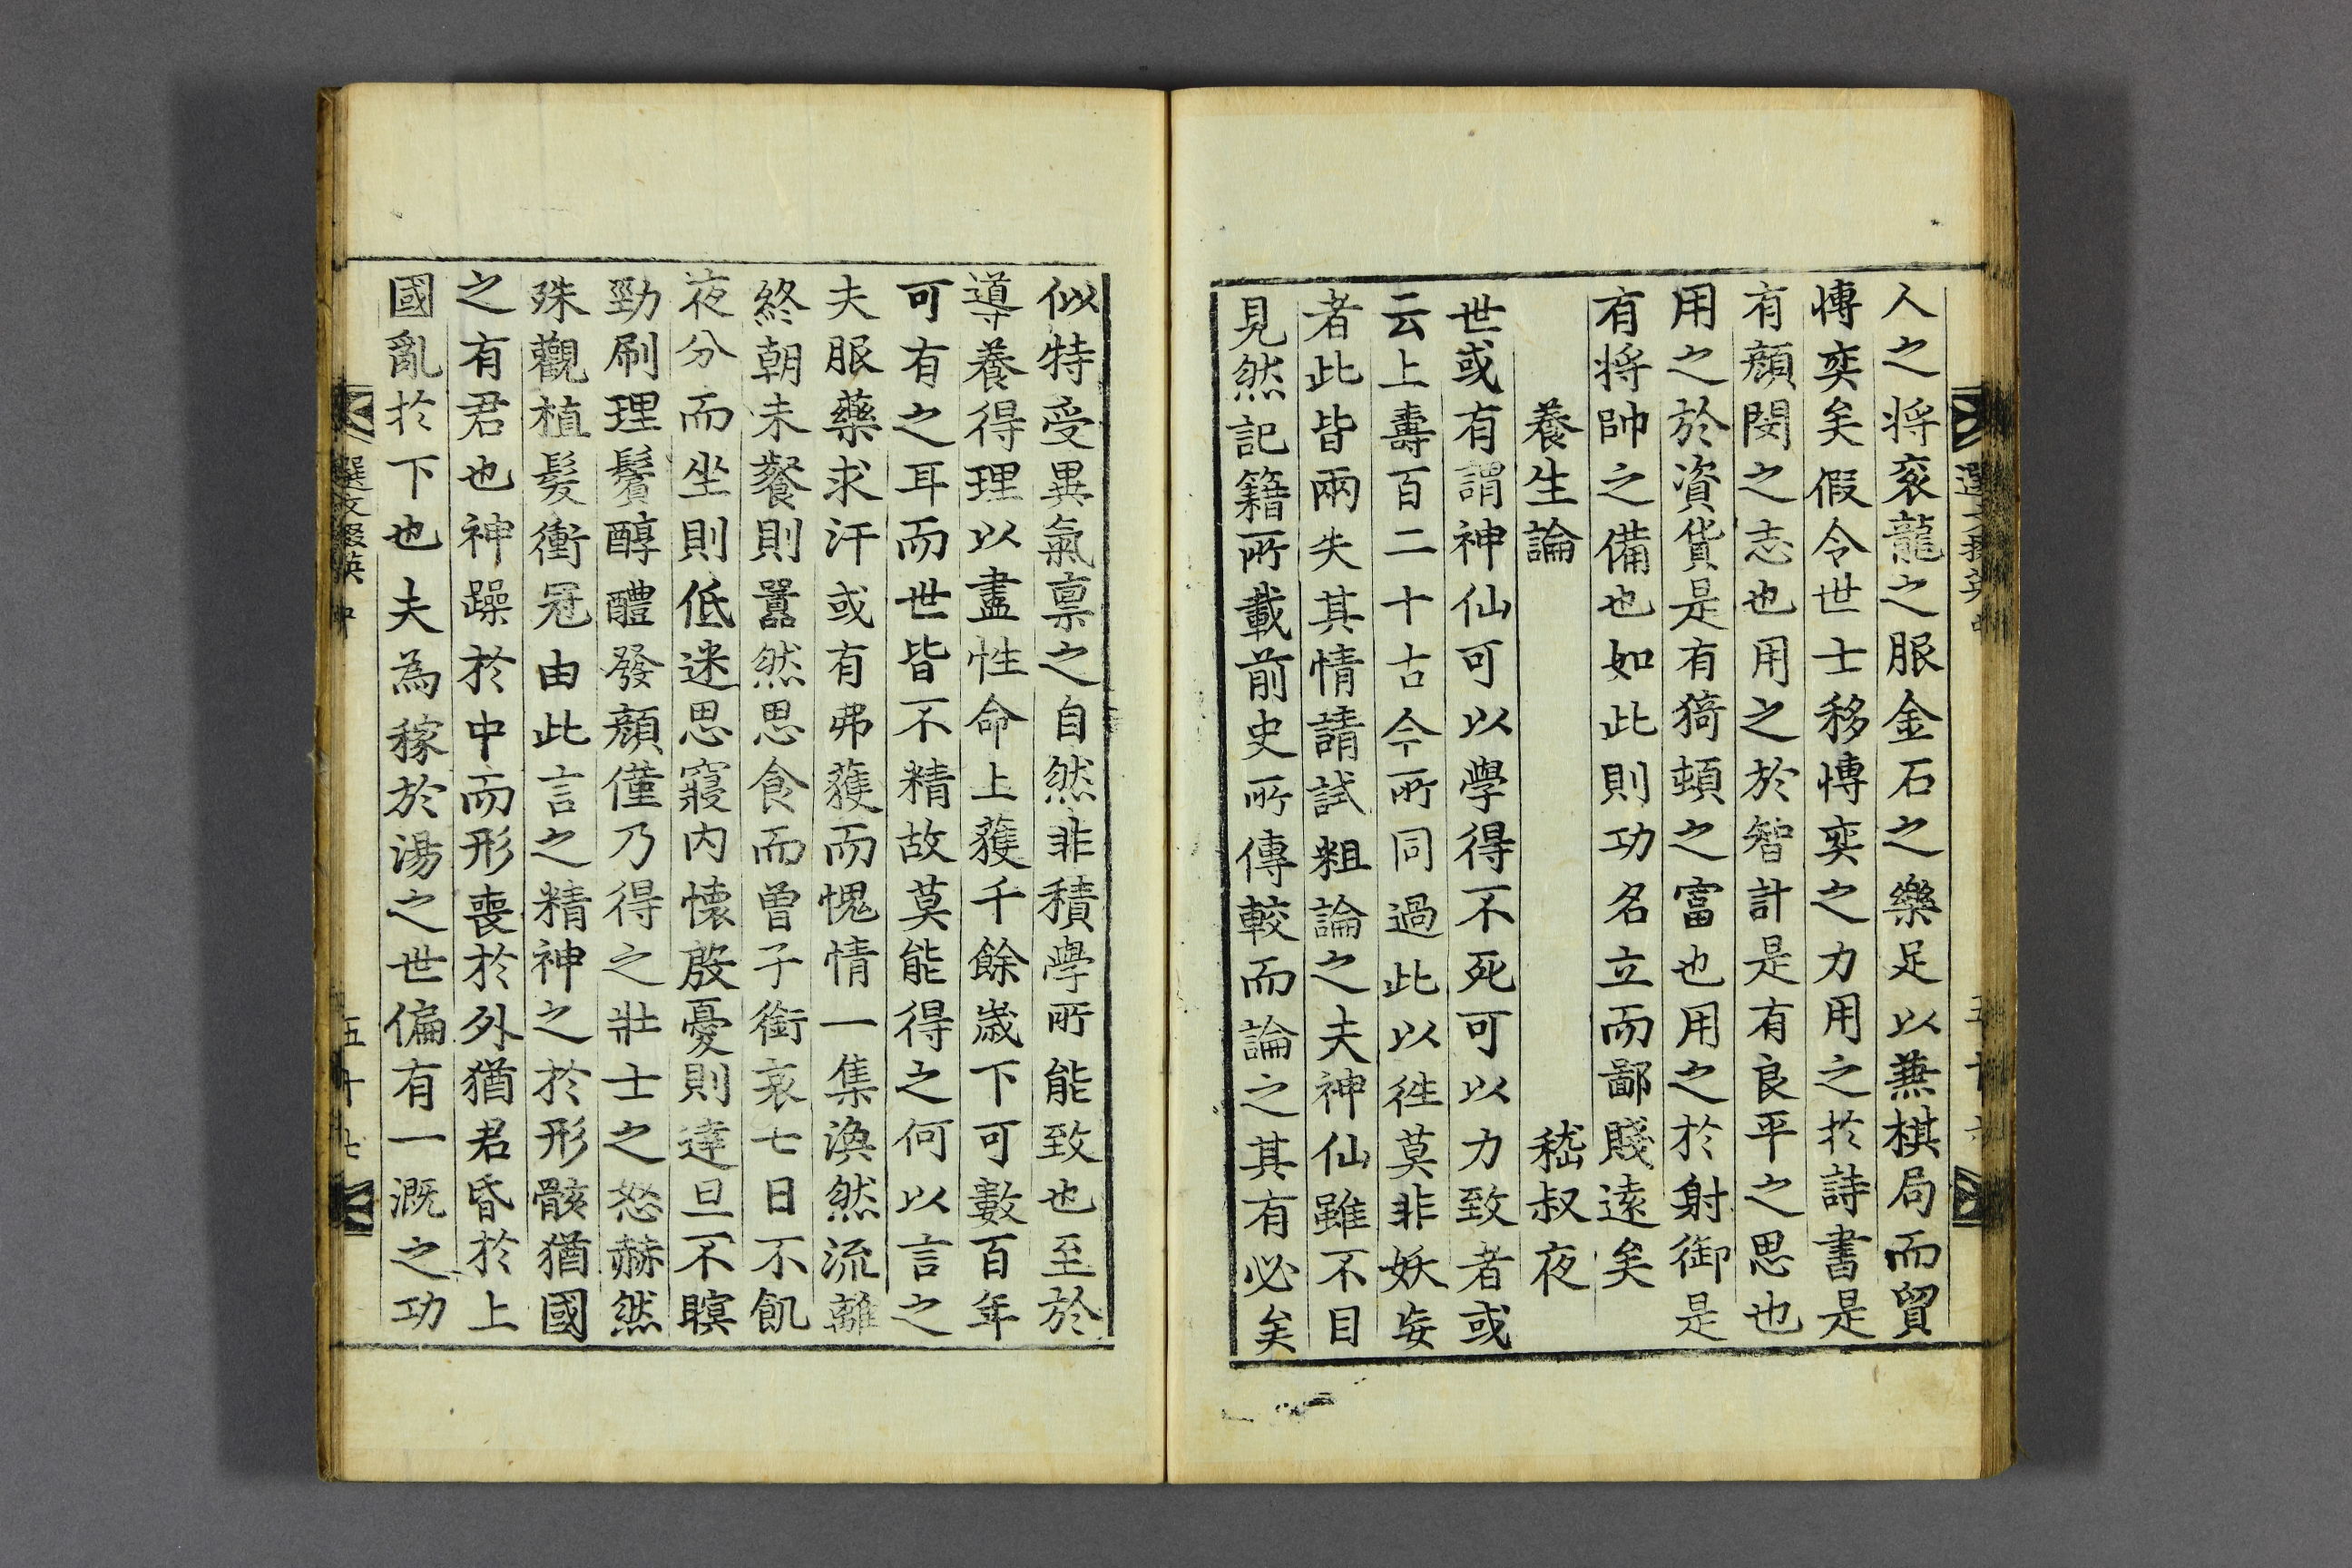 人之將衮龍之服金石之樂足以兼棋局而貿
博奕矣假令世士移博奕之力用之於詩書是
有顔閔之志也用之於智計是有良平之思也
用之於資貨是有猗頓之富也用之於射御是
有將帥之備也如此則功名立而鄙賤遠矣
養生論 嵇叔夜
世或有謂神仙可以學得不死可以力致者或
云上壽百二十古今所同過此以徃莫非妖妄
者此皆兩失其情請試粗論之夫神仙雖不目
見然記籍所載前史所傳較而論之其有必矣
似特受異氣禀之自然非積學所能致也至於
導養得理以盡性命上獲千餘歲下可數百年
可有之耳而世皆不精故莫能得之何以言之
夫服藥求汗或有弗獲而愧情一集渙然流離
終朝未餐則嚻然思食而曾子銜哀七日不飢
夜分而坐則低迷思寢内懷殷憂則達旦不瞑
勁刷理鬢醇醴發顔僅乃得之壯士之怒赫然
殊觀植髮衝冠由此言之精神之於形骸猶國
之有君也神躁於中而形喪於外猶君昏於上
國亂於下也夫為稼於湯之世偏有一溉之功
選文掇英 中 五十七